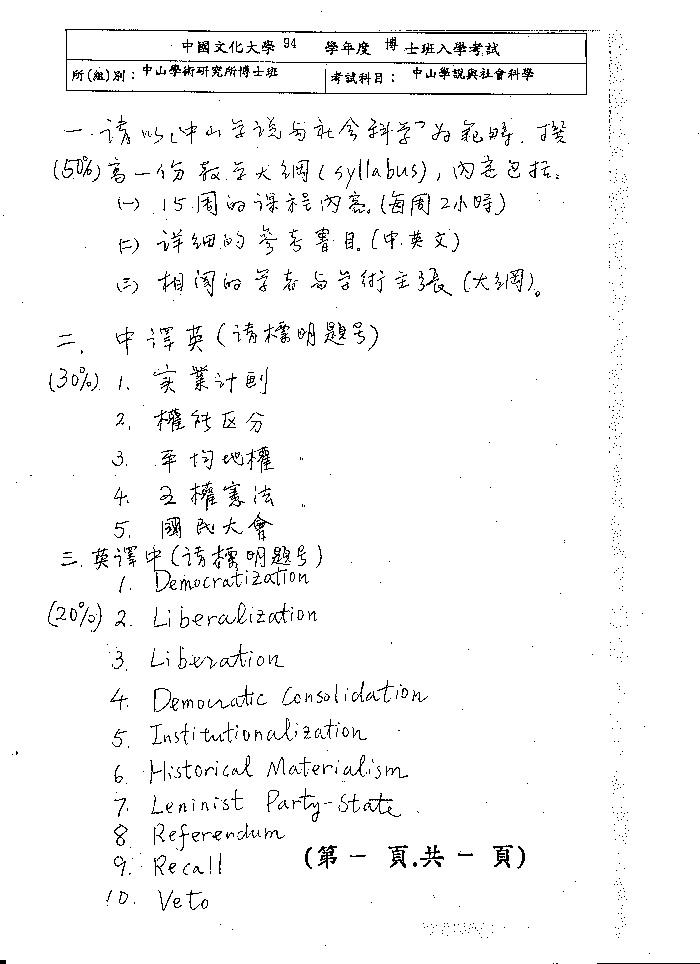 中國文化大學 94 學年度 博 士班入學考試
所(組)別：中山學術研究所博士班 考試科目： 中山學說與社會科學
一. 请以「中山学说与社会科学」为範疇，撰
(50%) 寫一份教学大綱(syllabus)，內容包括：
(一) 15周的课程內容。(每周2小時)
(二) 详细的參考書目。(中.英文)
(三) 相関的学者与学術主張(大綱)。
二. 中譯英(请標明題号)
(30%) 1. 実業计劃
2. 權能区分
3. 平均地權
4. 五權憲法
5. 國民大會
三. 英譯中(请標明題号)
1. Democratization
(20%) 2. Liberalization
3. Liberation
4. Democratic Consolidation
5. Institutionalization
6. Historical Materialism
7. Leninist Party-State
8. Referendum
9. Recall
10. Veto
(第 一 頁.共 一 頁)